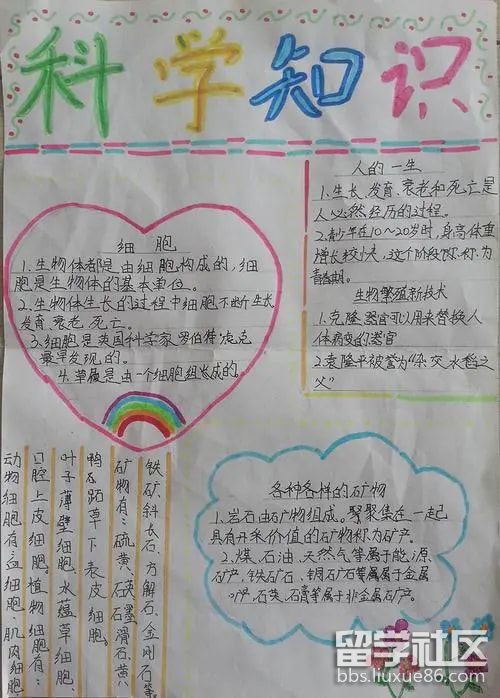 科学知识
人的一生
1.生长、发育、衰老和死亡是
人必然经历的过程。
2.青少年在10~20岁时,身高体重
增长较快,这个阶段称为
青春期。
生物繁殖新技术
1.克隆器官可以用来替换人
体病变的器官
2.袁隆平被誉为“杂交水稻之
父”
细胞
1.生物体都是由细胞构成的,细
胞是生物体的基本单位。
2.生物体生长的过程中细胞不断生长
发育、衰老、死亡。
3.细胞是英国科学家罗伯特·虎克
最早发现的。
4.草履是由一个细胞组长成的。
铁矿、斜长石、方解石、金刚石等
矿物有:硫黄、石英、石墨、滑石、黄
鸭石跖草下表皮细胞。
叶子薄壁细胞、水蕴草细胞、
口腔上皮细胞。植物细胞有:
动物细胞有:血细胞、肌肉细胞
各种各样的矿物
1.岩石由矿物组成。聚集在一起
具有开采价值的矿物称为矿产。
2.煤、石油、天然气等属于能源
矿产,铁矿石、铜矿石等属于金属
石英、石膏等属于非金属矿产。
留学社区
bbs.liuxue86.com